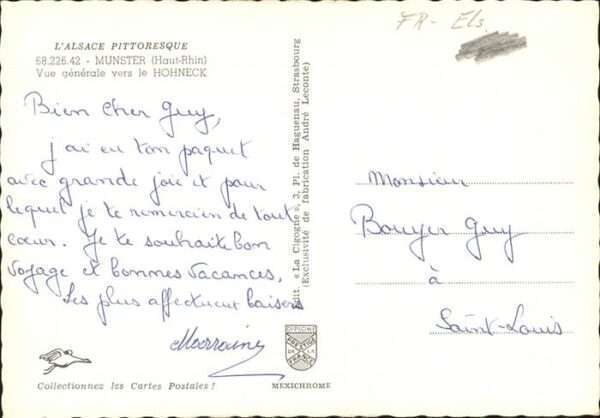 FR- Els
L'ALSACE PITTORESQUE
68.226.42 - MUNSTER (Haut-Rhin)
Vue générale vers le HOHNECK
Bien cher Guy,
j'ai eu ton paquet
avec grande joie et pour
lequel je te remercien de tout
cœur. Je te souhaite bon
voyage et bonnes vacances,
Les plus affectueux baisers
Edit. « La Cigogne », 3, Pl. de Haguenau, Strasbourg
(Exclusivité de fabrication André Leconte)
Monsieur
Bouyer Guy
à
Saint-Louis
DIPLOME
PRESTIGE
DE LA
FRANCE
Collectionnez les Cartes Postales !
MEXICHROME